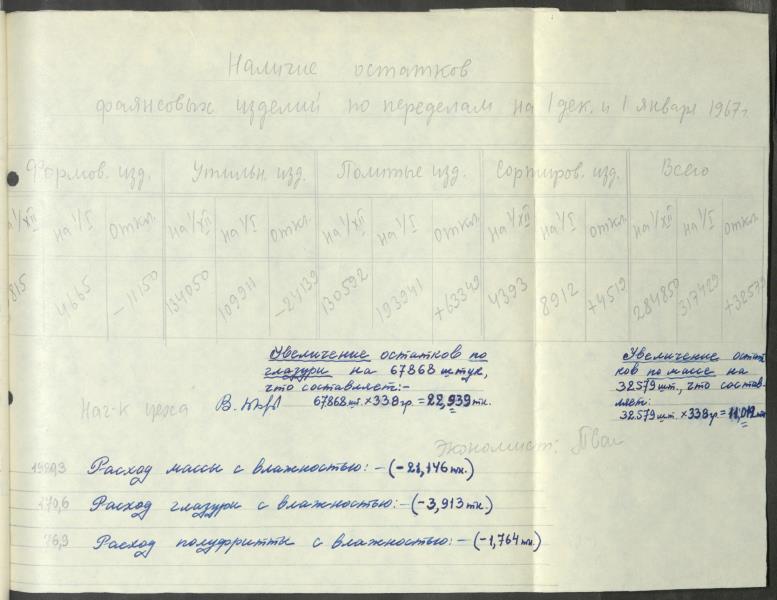 Наличие остатков
фаянсовых изделий по переделам на 1 дек. и 1 января 1967г.
Формов. изд. Утильн. изд. Политые изд. Сортиров. изд. Всего
на 1/XII на 1/I откл. на 1/XII на 1/I откл. на 1/XII на 1/I откл. на 1/XII на 1/I откл. на 1/XII на 1/I откл.
815 4665 -11150 134050 109911 -24139 130592 193941 +63349 4393 8912 +4519 284850 317429 +32579
Увеличение остатков по
глазури на 67868 штук,
что составляет:-
67868 шт. × 338 гр. = 22,939 тн.
Увеличение остат
ков по массе на
32579 шт., что состав-
ляет:
32579 шт. × 338 гр. = 11,012 тн
Нач-к цеха
Экономист:
Расход массы с влажностью: - (-21,146 тн.)
170,6 Расход глазури с влажностью: - (-3,913 тн.)
76,9 Расход полуфритты с влажностью: - (-1,764 тн.)